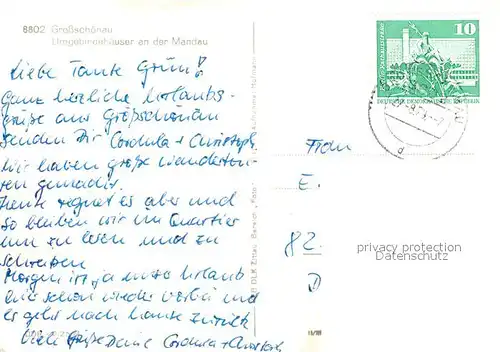 8802 Großschönau
Umgebindehäuser an der Mandau
Liebe Tante Grün!
Ganz herzliche Urlaubs-
grüße aus Großschönau
senden Dir Cordula + Christoph.
Wir haben große Wandertou-
ren gemacht.
Heute regnet es aber und
so bleiben wir im Quartier
um zu lesen und zu
schreiben
Morgen ist ja unser Urlaub
schon wieder vorbei und
es geht nach Hause zurück
Viele Grüße Deine Cordula + Christoph
10
DEUTSCHE DEMOKRATISCHE REPUBLIK
Frau
E.
82
D
privacy protection
Datenschutz